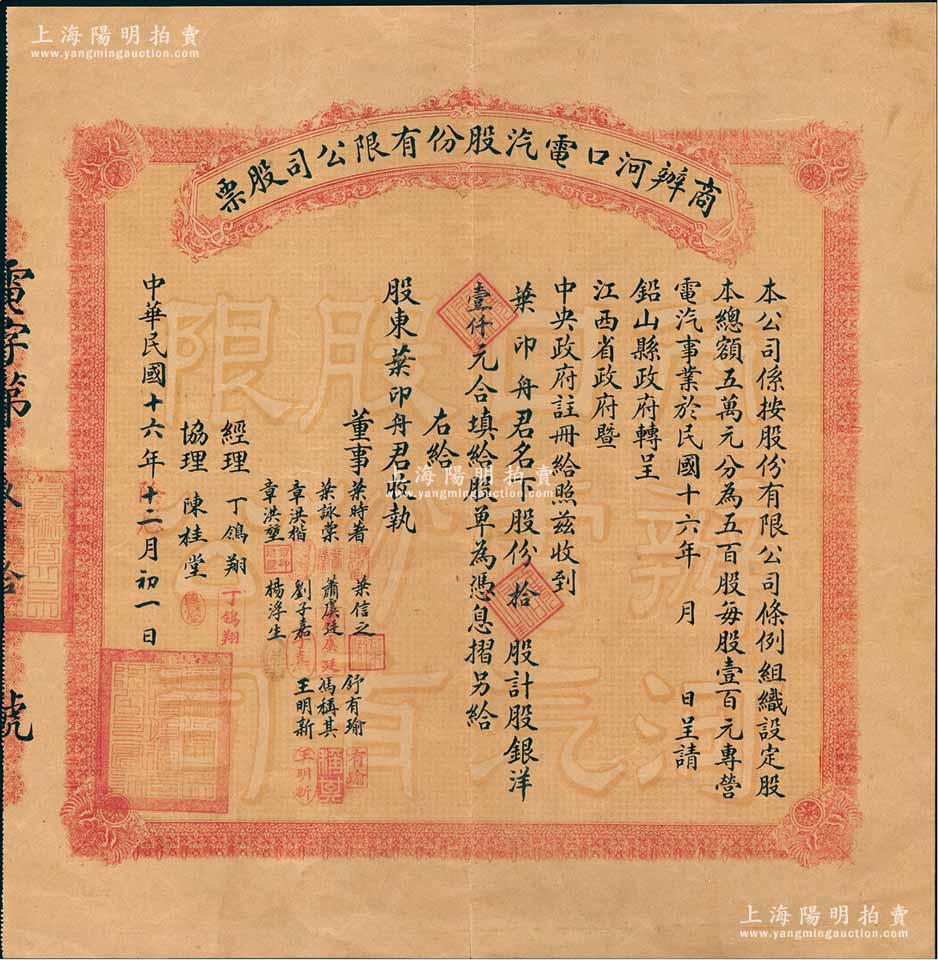 上海陽明拍賣
www.yangmingauction.com
商辦河口電汽股份有限公司股票
本公司係按股份有限公司條例組織設定股
本總額五萬元分為五百股每股壹百元專營
電汽事業於民國十六年 月 日呈請
鉛山縣政府轉呈
江西省政府暨
中央政府註冊給照茲收到
葉印舟君名下股份拾股計股銀洋
壹仟元合填給股單為憑息摺另給
右給
股東葉印舟君收執
董事 葉時著 葉信之 舒有瑜
葉詠棠 蕭虞廷 馮稱其
章洪楷 劉子嘉 王明新
章洪堃 楊浮生
經理 丁鴿翔
丁鴿翔
協理 陳桂堂
中華民國十六年十二月初一日
電字第 拾 號
有瑜
王明新
商辦河口電汽股份有限公司
上海陽明拍賣
www.yangmingauction.com
上海陽明拍賣
www.yangmingauction.com